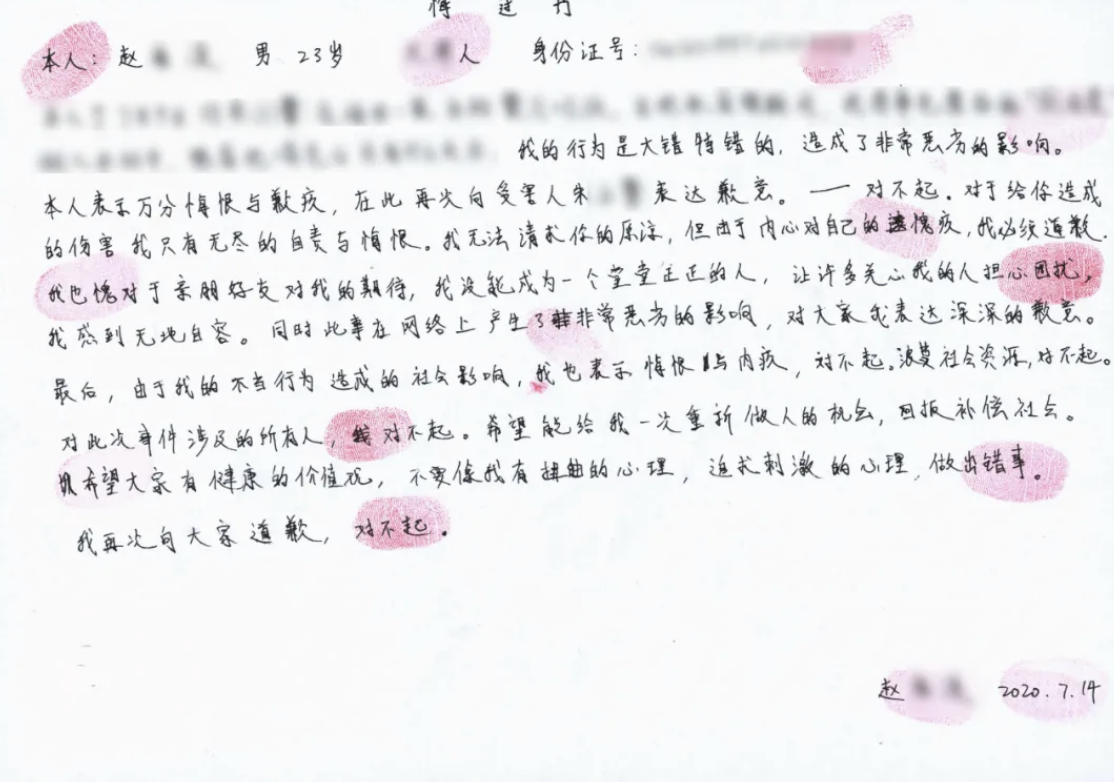 悔过书
本人：赵 男 23岁 人 身份证号：
我的行为是大错特错的，造成了非常恶劣的影响。
本人表示万分悔恨与歉疚，在此再次向受害人朱 表达歉意。——对不起．对于给你造成
的伤害我只有无尽的自责与悔恨。我无法请求你的原谅，但由于内心对自己的愧疚，我必须道歉．
我也愧对于亲朋好友对我的期待，我没能成为一个堂堂正正的人，让许多关心我的人担心困扰，
我感到无地自容。同时此事在网络上产生了非常恶劣的影响，对大家我表达深深的歉意。
最后，由于我的不当行为造成的社会影响，我也表示悔恨与内疚，对不起。浪费社会资源，对不起。
对此次事件涉及的所有人，对不起。希望能给我一次重新做人的机会，回报补偿社会。
希望大家有健康的价值观，不要像我有扭曲的心理，追求刺激的心理，做出错事。
我再次向大家道歉，对不起。
赵 2020.7.14